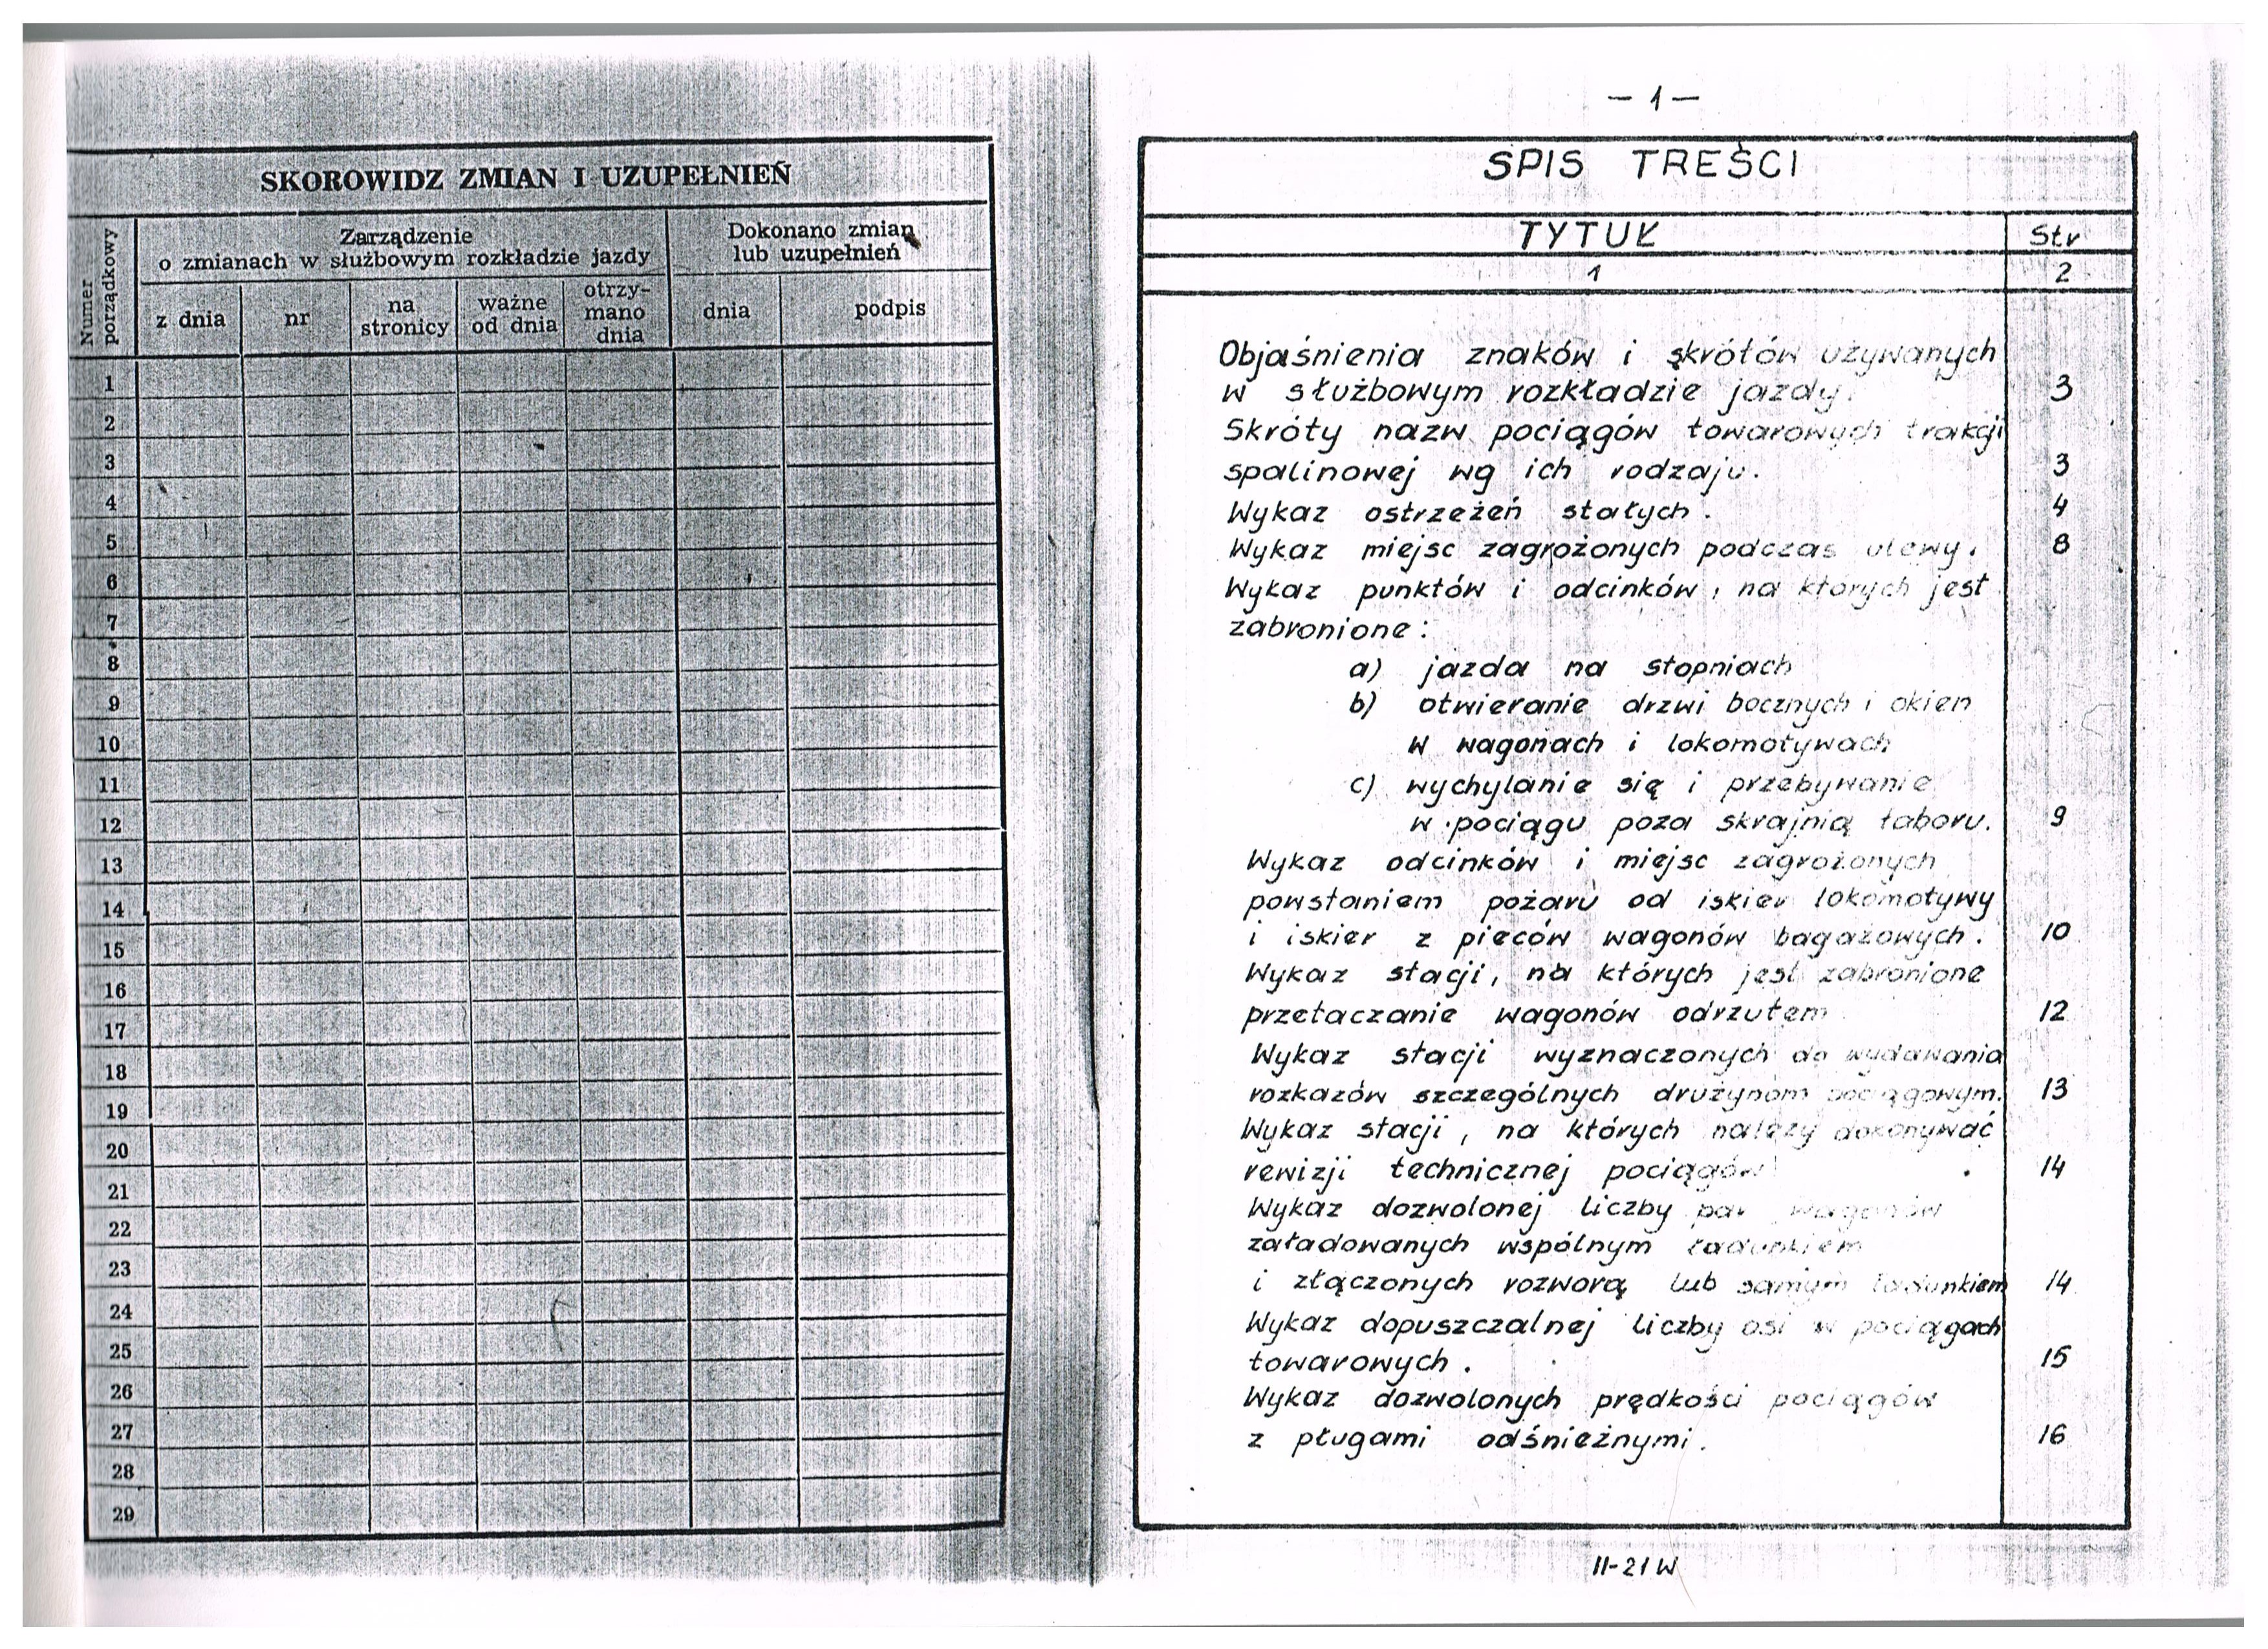 SKOROWIDZ ZMIAN I UZUPEŁNIEŃ
Numer
porządkowy
Zarządzenie
o zmianach w służbowym rozkładzie jazdy
Dokonano zmian
lub uzupełnień
z dnia
nr
na
stronicy
ważne
od dnia
otrzy-
mano
dnia
dnia
podpis
1
2
3
4
5
6
7
8
9
10
11
12
13
14
15
16
17
18
19
20
21
22
23
24
25
26
27
28
29
— 1 —
SPIS TREŚCI
TYTUŁ Str
1 2
Objaśnienia znaków i skrótów używanych
w służbowym rozkładzie jazdy. 3
Skróty nazw pociągów towarowych trakcji
spalinowej wg ich rodzaju. 3
Wykaz ostrzeżeń stałych. 4
Wykaz miejsc zagrożonych podczas ulewy. 8
Wykaz punktów i odcinków, na których jest
zabronione:
a) jazda na stopniach
b) otwieranie drzwi bocznych i okien
w wagonach i lokomotywach
c) wychylanie się i przebywanie
w pociągu poza skrajnią taboru. 9
Wykaz odcinków i miejsc zagrożonych
powstaniem pożaru od iskier lokomotywy
i iskier z pieców wagonów bagażowych. 10
Wykaz stacji, na których jest zabronione
przetaczanie wagonów odrzutem 12
Wykaz stacji wyznaczonych do wydawania
rozkazów szczególnych drużynom pociągowym. 13
Wykaz stacji, na których należy dokonywać
rewizji technicznej pociągów. 14
Wykaz dozwolonej liczby par wagonów
załadowanych wspólnym ładunkiem
i złączonych rozworą lub samym ładunkiem 14
Wykaz dopuszczalnej liczby osi w pociągach
towarowych. 15
Wykaz dozwolonych prędkości pociągów
z pługami odśnieżnymi. 16
II-21W